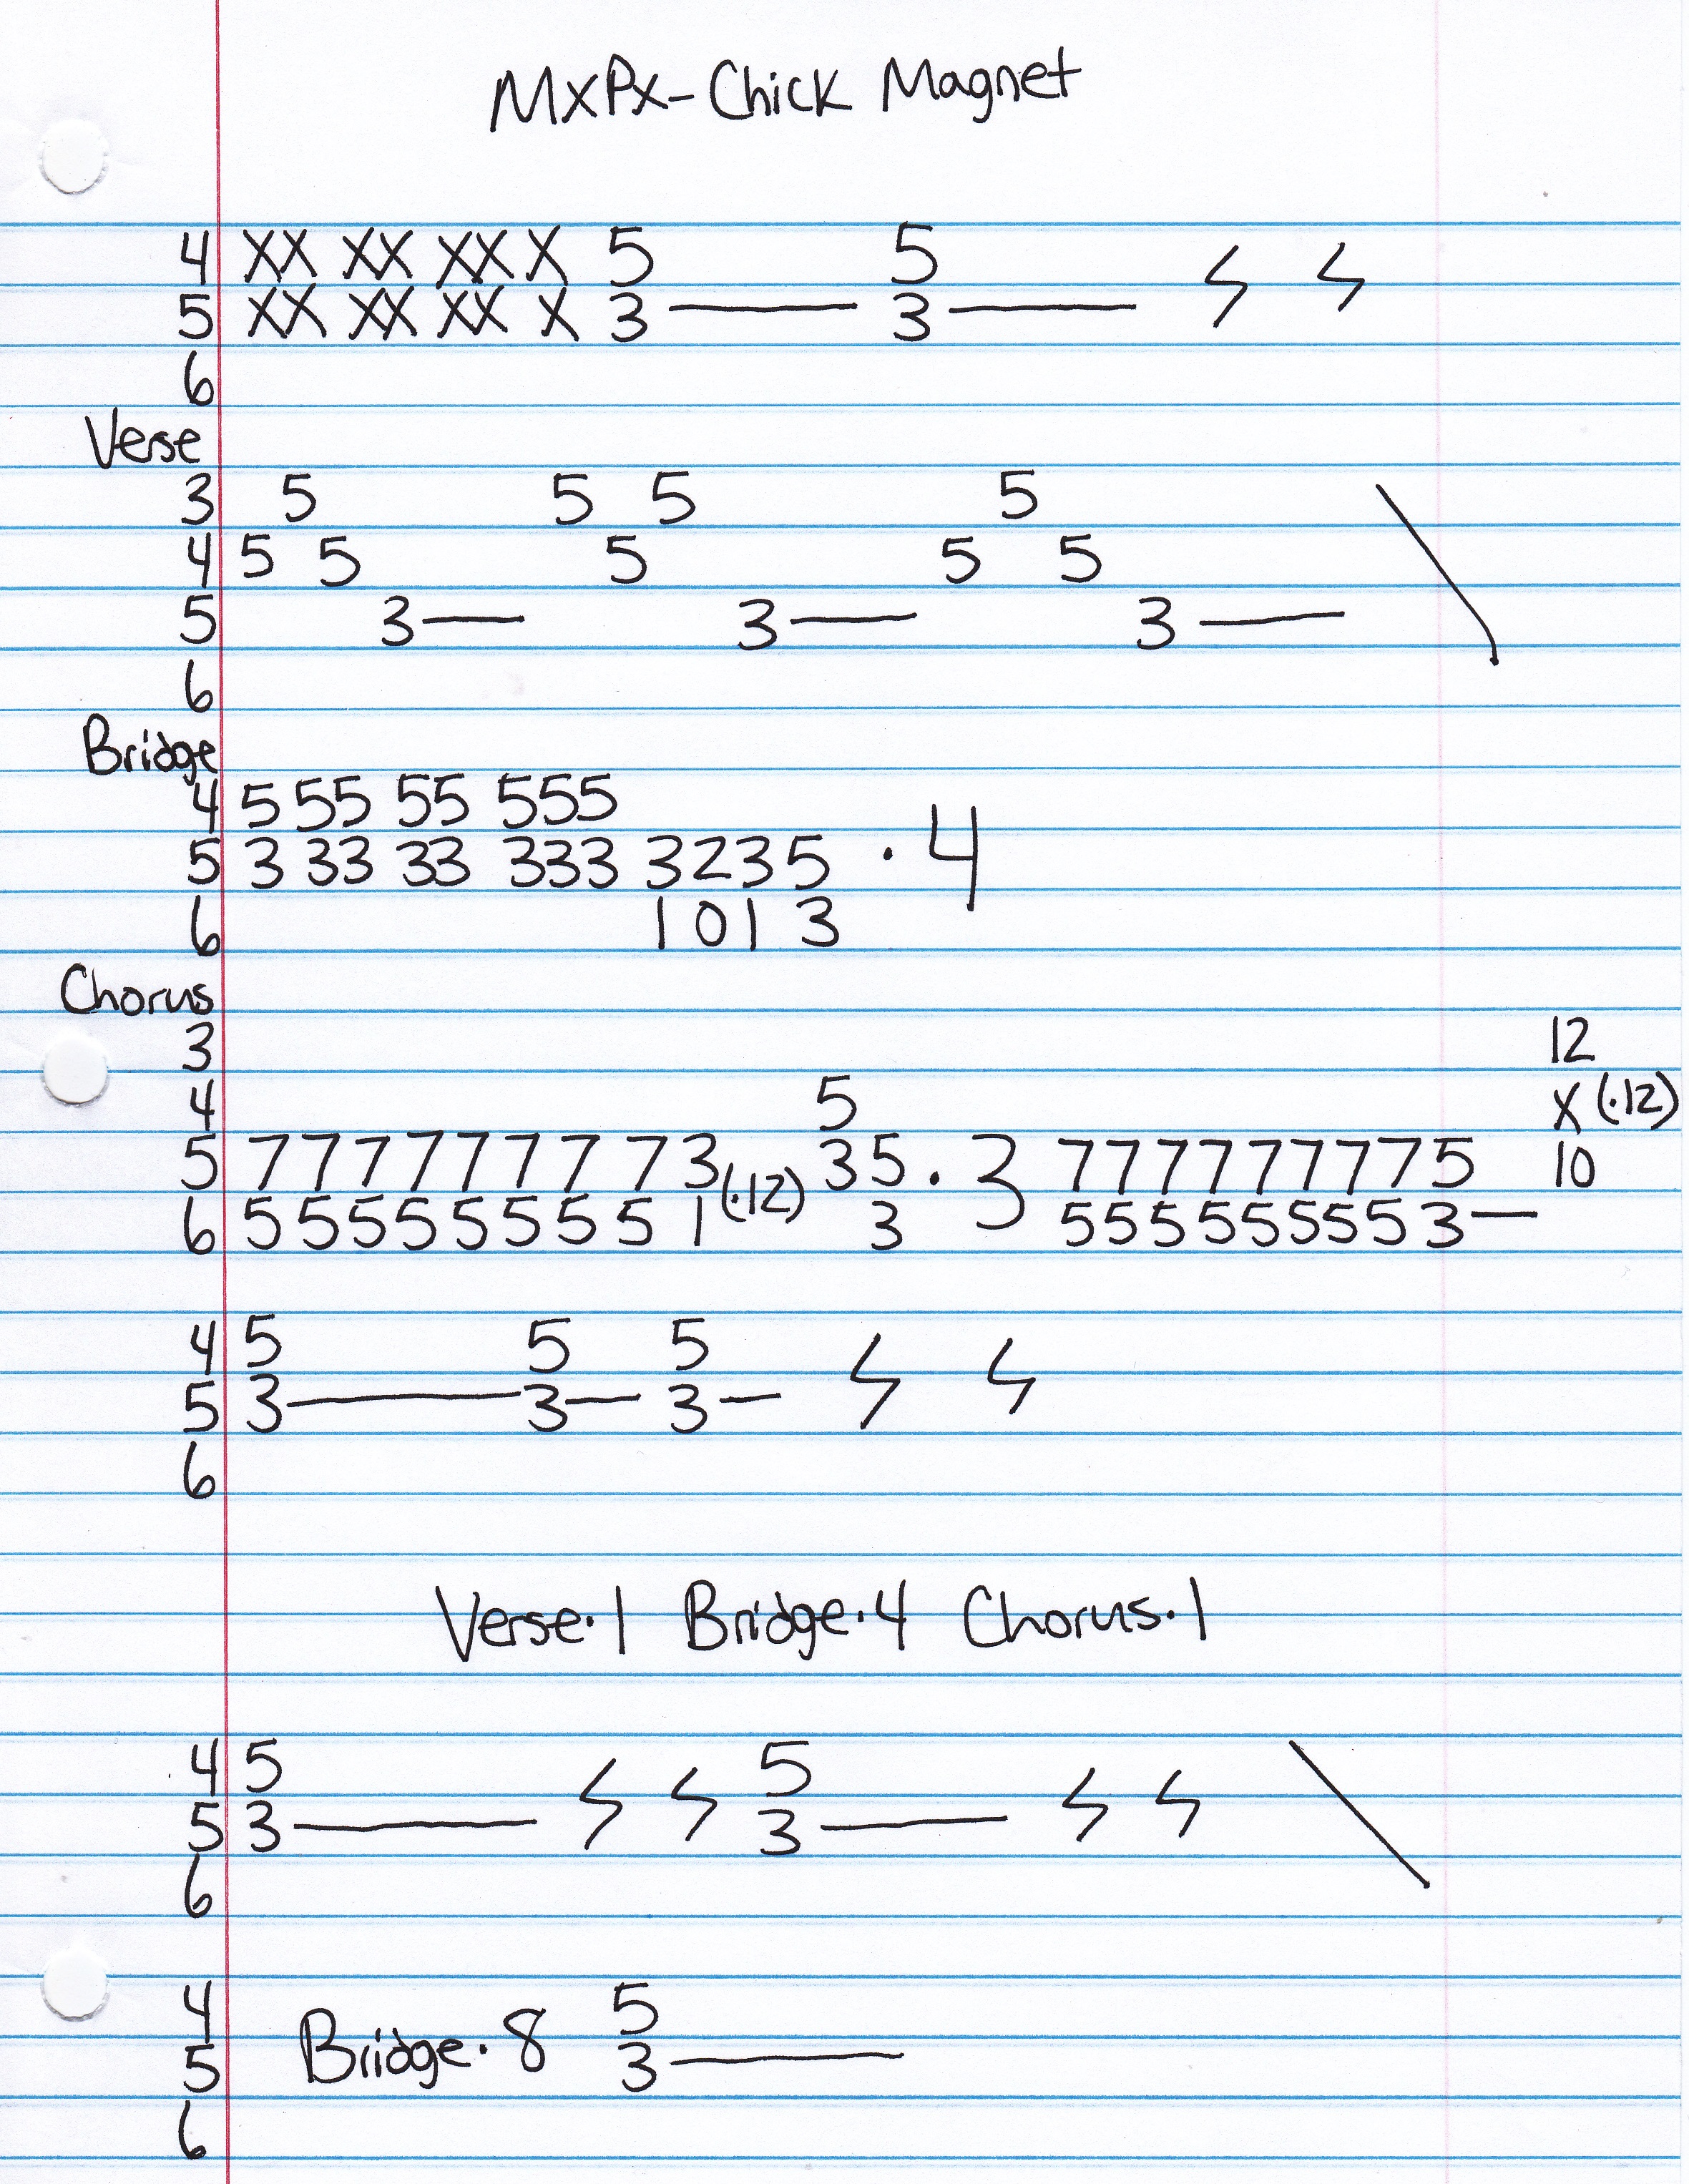 MxPx-Chick Magnet
4 XX XX XX X 5 5
5 XX XX XX X 3 — 3 —
6
Verse
3 5 5 5 5
4 5 5 5 5 5
5 3 — 3 — 3 —
6
Bridge
4 5 55 55 555
5 3 33 33 333 3235 · 4
6 1013
Chorus
3 12
4 5 X (·12)
5 77777777 3 35 · 3 777777777 5 10
6 55555555 1 (·12) 3 55555555 3 —
4 5 5 5
5 3 — 3 — 3 —
6
Verse·1 Bridge·4 Chorus·1
4 5 5
5 3 — 3 —
6
4 5
5 Bridge·8 3 —
6